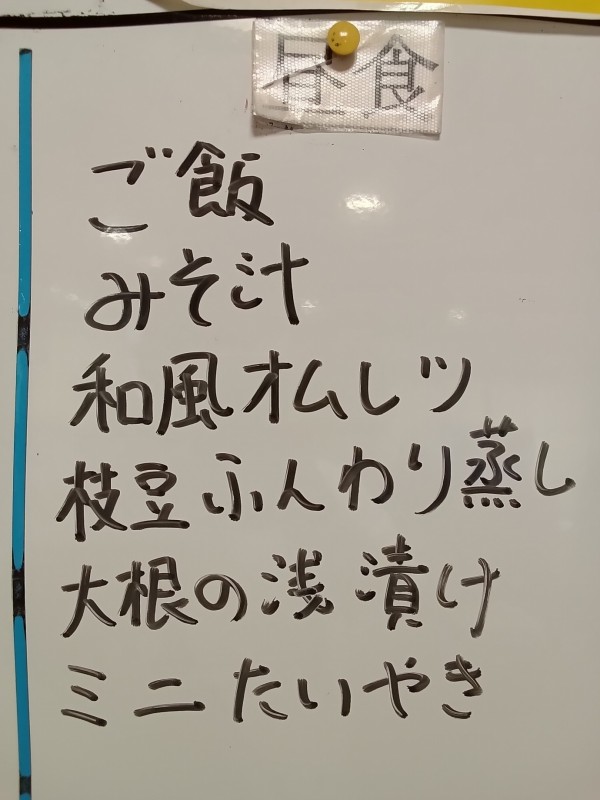 昼食
ご飯
みそ汁
和風オムレツ
枝豆ふんわり蒸し
大根の浅漬け
ミニたいやき